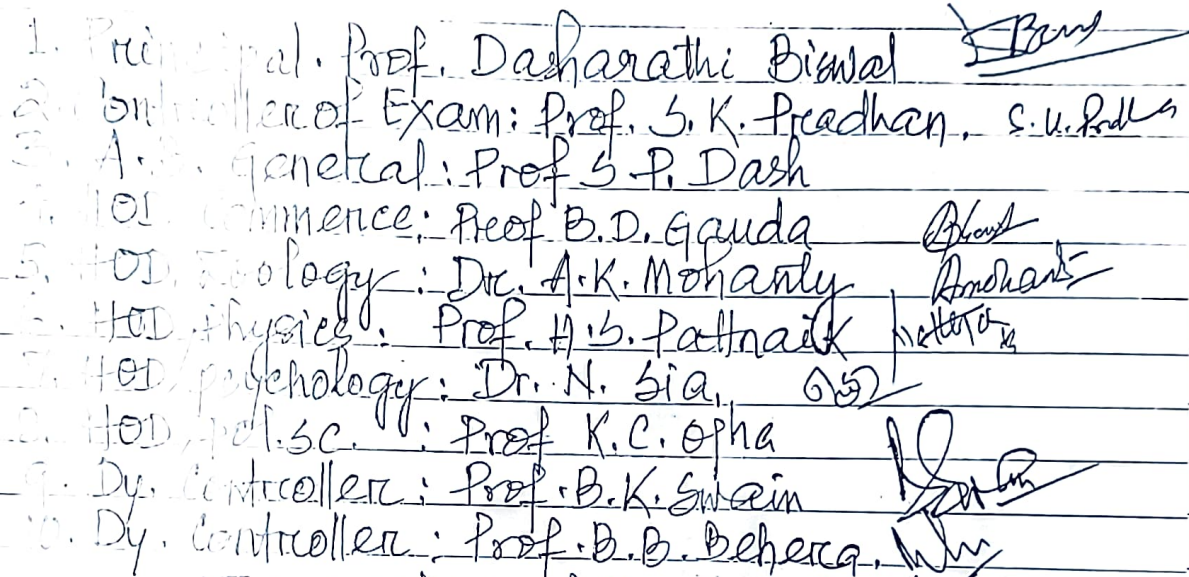 1. Principal. Prof. Dasharathi Biswal
2. Controller of Exam: Prof. S. K. Pradhan, S.K. Pradhan
3. A. General: Prof S P. Dash
4. HOD Commerce: Prof B.D. Gauda
5. HOD, Zoology: Dr. A.K. Mohanty AMohanty
6. HOD, Physics: Prof. H.S. Pattnaik
7. HOD, psychology: Dr. N. Sia,
8. HOD, pol.sc. : Prof K.C. Ojha
9. Dy. Controller: Prof. B.K. Swain
10. Dy. Controller: Prof. B.B. Behera,